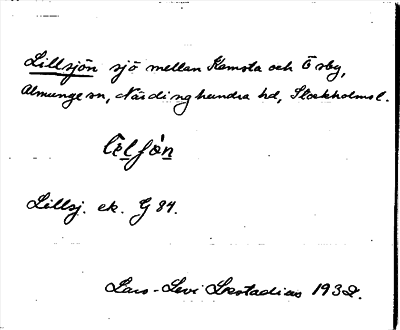 Lillsjön sjö mellan Kamsta och Örby,
Almunge sn, Närdinghundra hd, Stockholms l.
Lillsj. ek. G 84.
Lars-Levi Læstadius 1932.